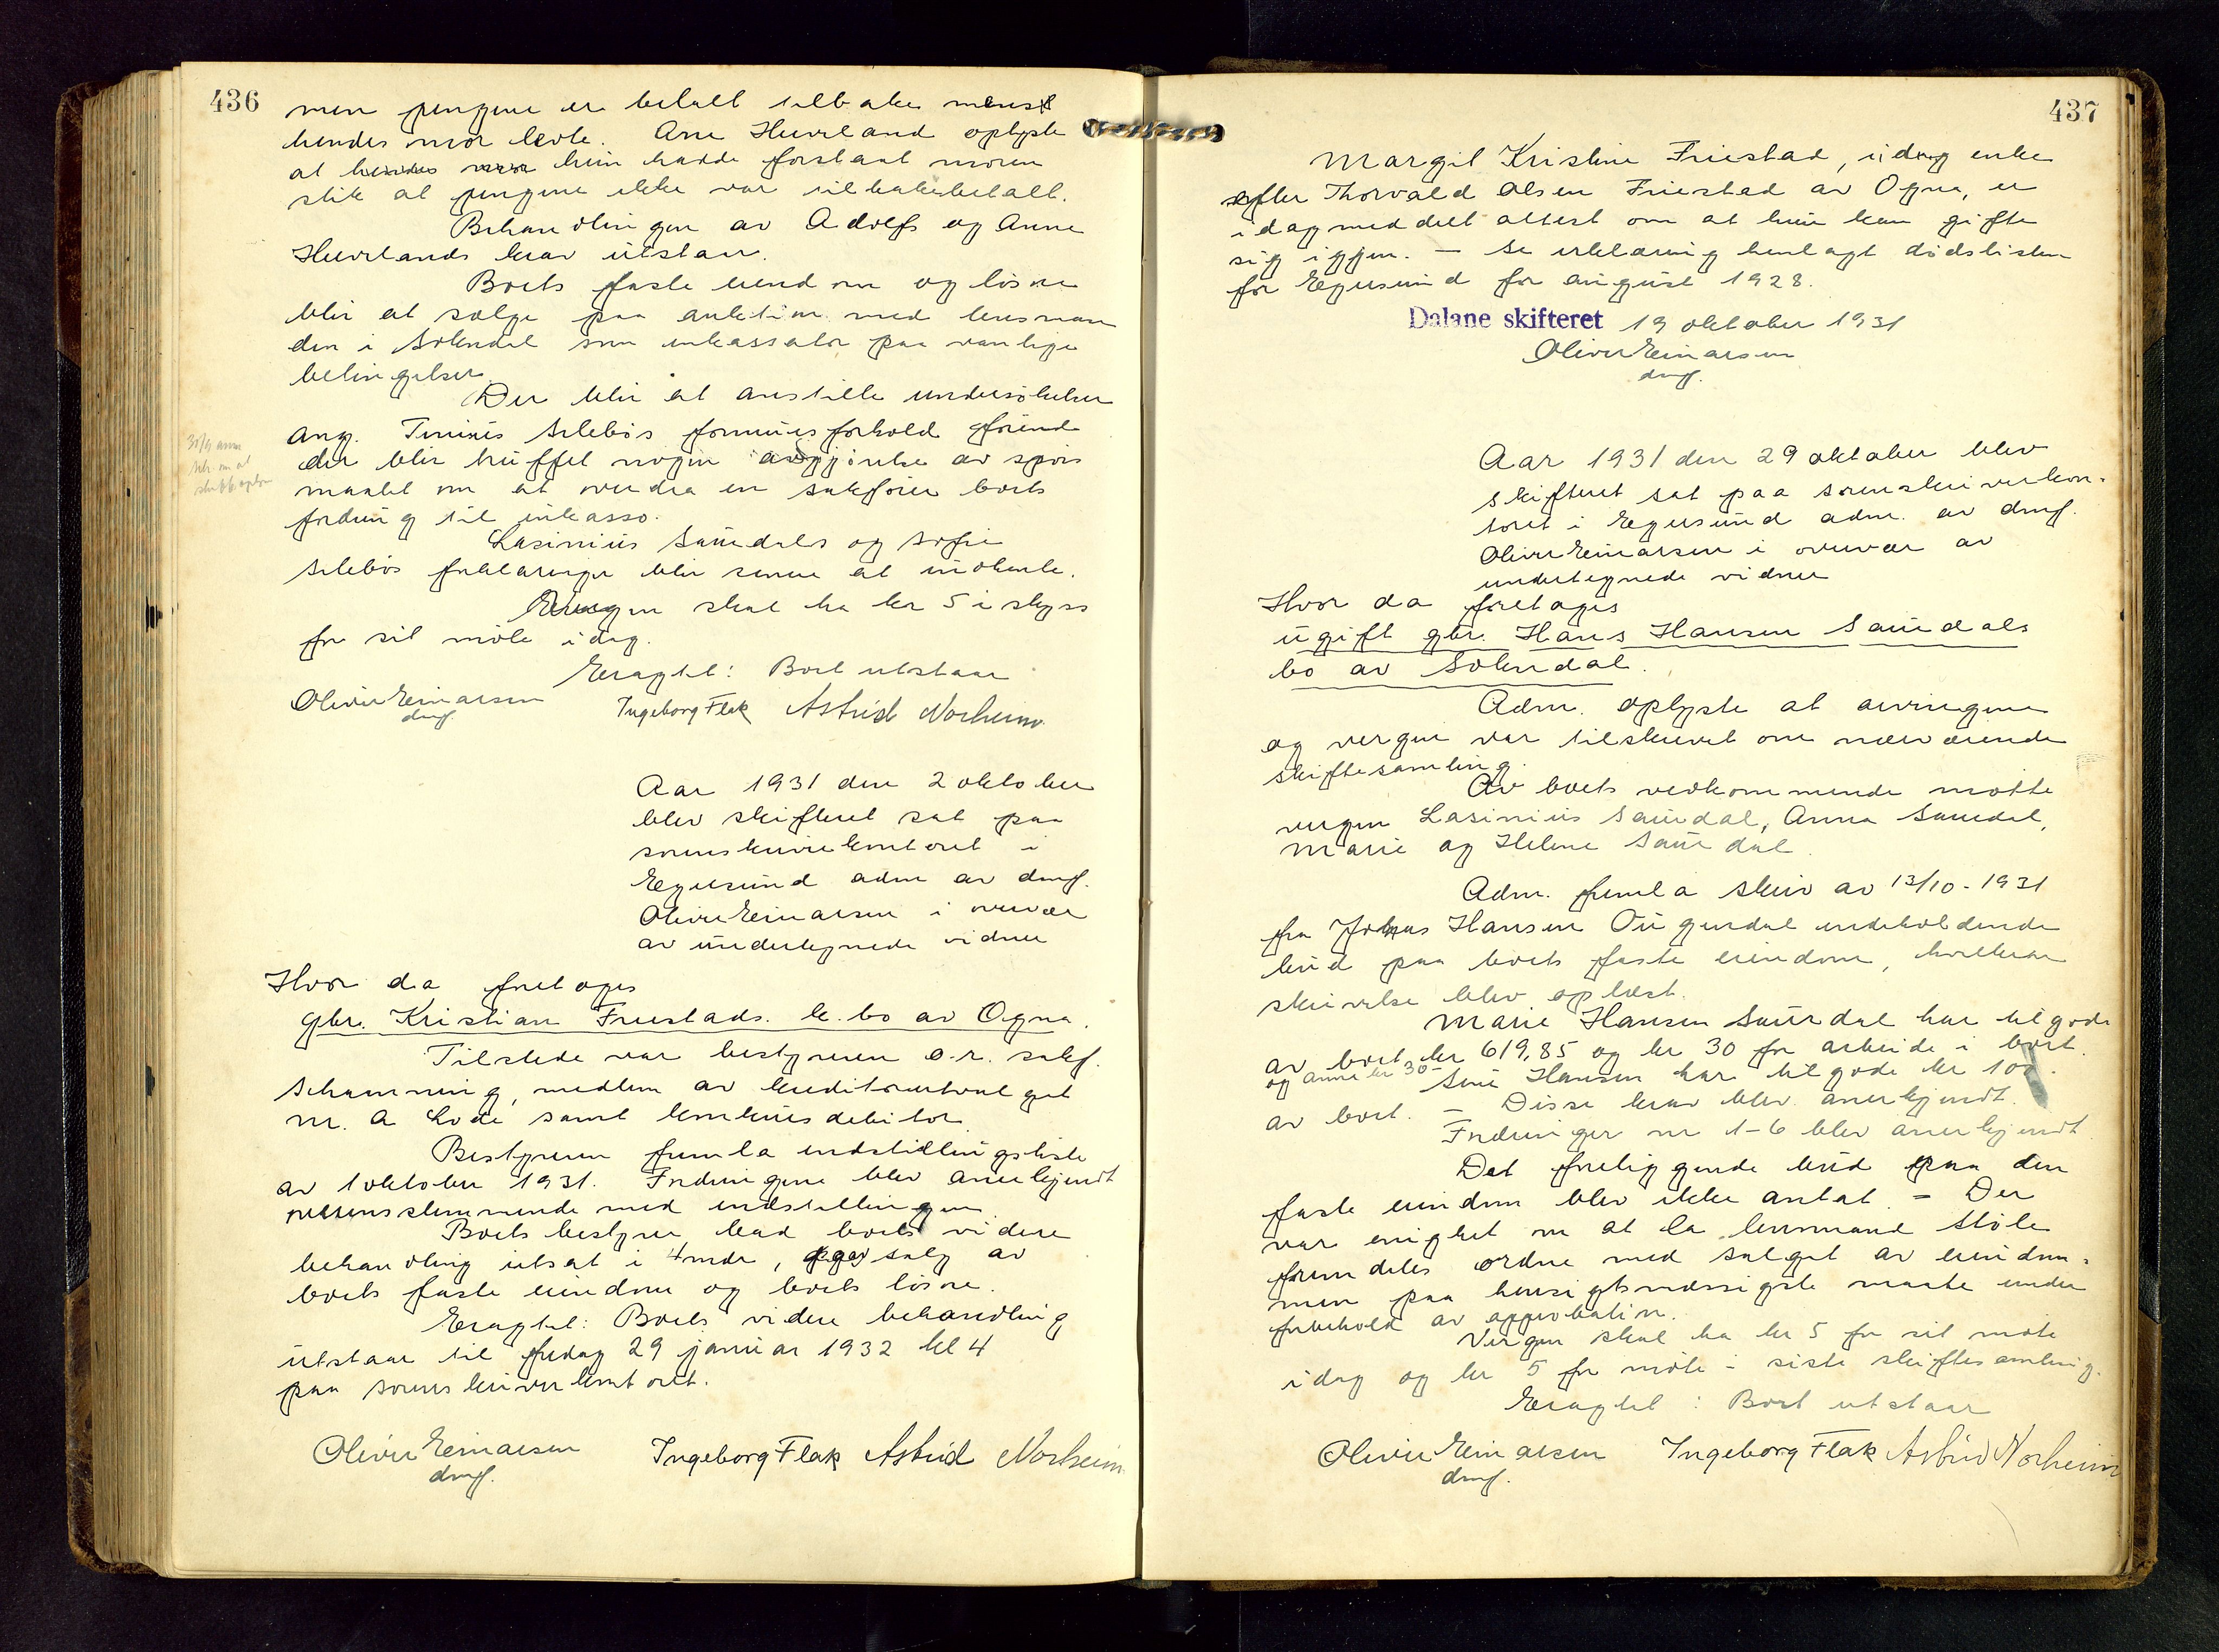 436
men pengene er betalt tilbake mens
hendes mor levte. Ane Huvrland oplyste
at hendes mor hun hadde forstaat moren
slik at pengene ikke var tilbakebetalt.
Behandlingen av Adolfs og Anne
Huvrlands krav utstaar.
Boets faste eiendom og lösöre
blir at sælge paa auktion med lensman
den i Sokndal som inkassator paa vanlige
betingelser.
Der blir at anstille undersökelser
ang. Tinius Selebös formuesforhold förend
der blir truffet nogen avgjörelse av spörs
maalet om at overdra en sakförer boets
fordring til inkasso.
Lasinius Saurdals og Sofie
Selebös forklaringer blir senere at indhente.
Vergen skal ha kr 5 i skyss
for sit möte idag.
Eragtet: Boet utstaar
Oliver Einarsen
dmf.
Ingeborg Flak Astrid Norheim
Aar 1931 den 2 oktober
blev skifteret sat paa
sorenskriverkontoret i
Egersund adm av dmf.
Oliver Einarsen i overvær
av undertegnede vidner
Hvor da foretoges
gbr. Kristian Friestads k. bo av Ogna.
Tilstede var bestyreren o.r. sakf.
Schanning, medlem av kreditorutvalget
M. A Lode samt konkursdebitor
Bestyreren fremla indstillingsliste
av 1 oktober 1931. Fordringene blev anerkjendt
overensstemmende med indstillingen
Boets bestyrer bad boets videre
behandling utsat i 4 mdr, salg av
boets faste eiendom og boets lösöre.
Eragtet: Boets videre behandling
utstaar til fredag 29 januar 1932 kl 4
paa sorenskriverkontoret.
Oliver Einarsen
dmf.
Ingeborg Flak Astrid Norheim
437
Margit Kristine Friestad, enke
efter Thorvald Olsen Friestad av Ogna, er
idag meddelt attest om at hun kan gifte
sig igjen. – Se erklæring henlagt dödslisten
for Egersund for august 1928.
Dalane skifteret 19 oktober 1931
Oliver Einarsen
dmf.
Aar 1931 den 29 oktober blev
skifteret sat paa sorenskriverkon-
toret i Egersund adm. av dmf.
Oliver Einarsen i overvær av
undertegnede vidner
Hvor da foretoges
ugift gbr. Hans Hansen Saurdals
bo av Sokndal.
Adm. oplyste at arvingene
og vergen var tilskrevet om nærværende
skiftesamling.
Av boets vedkommende mötte
vergen Lasinius Saurdal, Anna Saurdal,
Marie og Helene Saurdal.
Adm. fremla skriv av 13/10-1931
fra Johas Hansen Ougendal indeholdende
bud paa boets faste eiendom, hvilken
skrivelse blev oplæst.
Marie Hansen Saurdal har tilgode
av boet kr 619,85 og kr 30 for arbeide i boet.
og Anna kr 30– Sine Hansen har tilgode kr 100
av boet. – Disse krav blev anerkjendt.
Fordringer nr 1-6 blev anerkjendt
Det foreliggende bud paa den
faste eiendom blev ikke antat – Der
var enighet om at la lensmand Stöle
fremdeles ordne med salget av eiendom-
men paa hensigtsmæssigste maate under
forbehold av approbation.
Vergen skal ha kr 5 for sit möte
idag og kr 5 for möte i siste skiftesamling.
Eragtet: Boet utstaar
Oliver Einarsen
dmf.
Ingeborg Flak Astrid Norheim